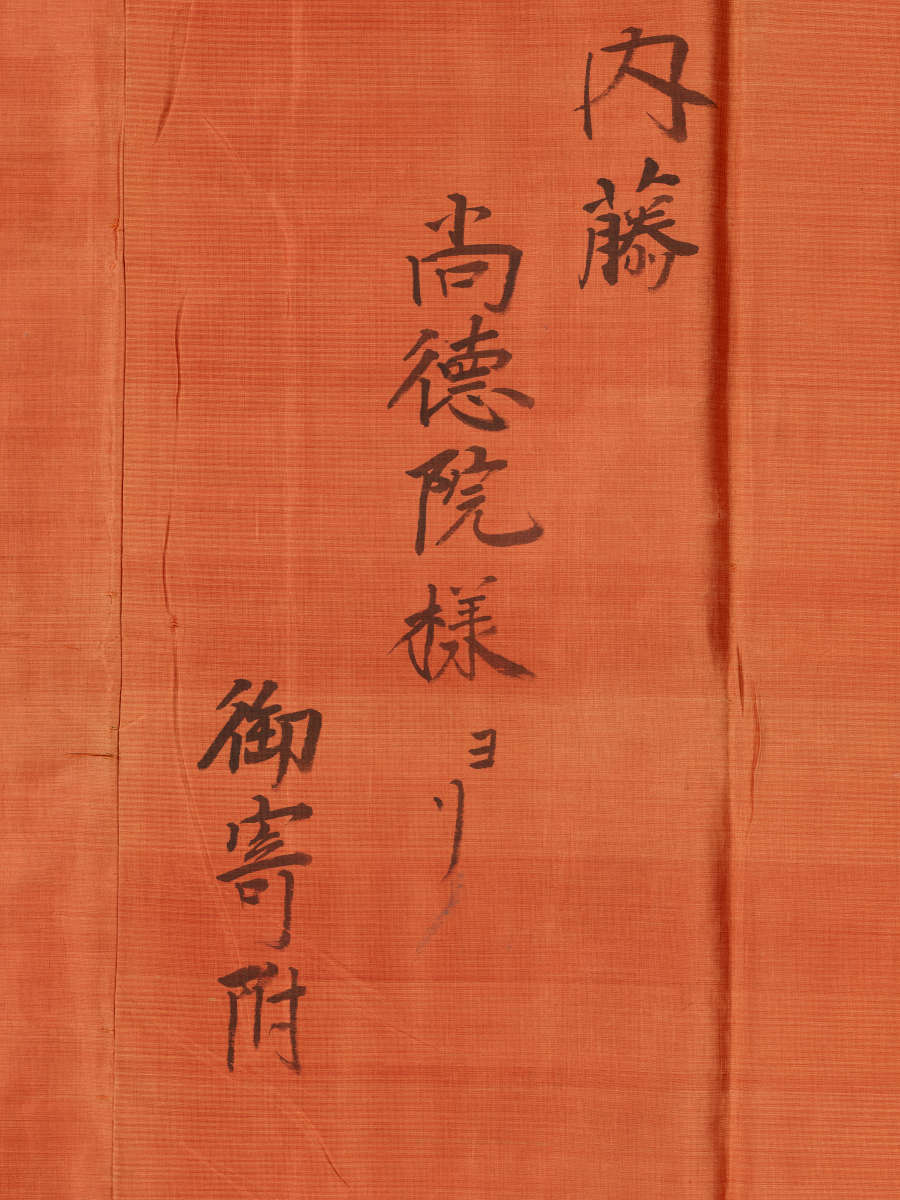 内藤
尚德院様ヨリ
御寄附